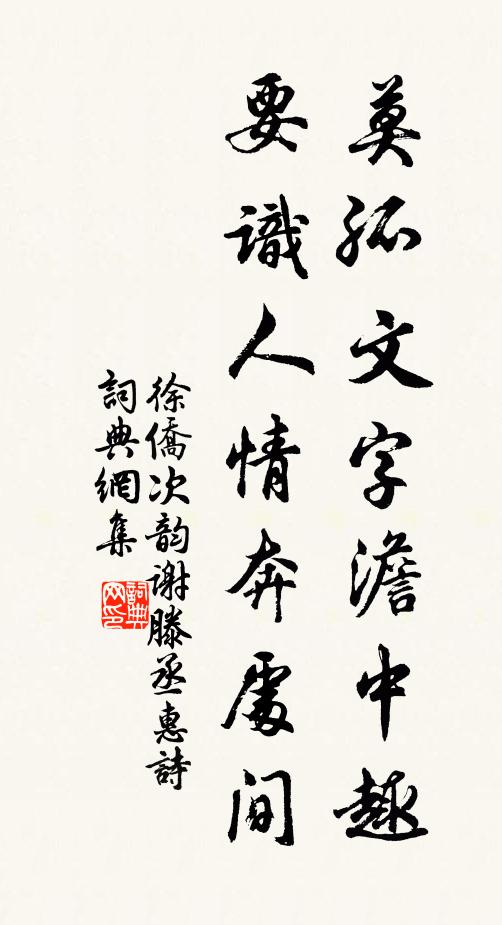 莫孤文字澹中趣
要識人情奔處間
徐僑次韵謝滕丞惠詩
詞典網集
詞典网印